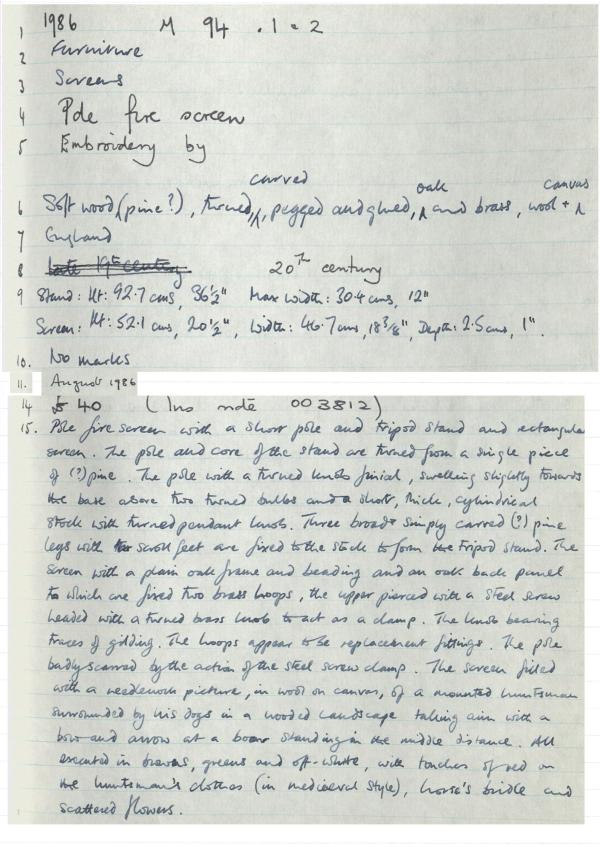 1 1986 M 94 .1 - 2
2 Furniture
3 Screens
4 Pole fire screen
5 Embroidery by
carved oak canvas
6 Soft wood (pine?), turned, pegged and glued, and brass, wool +
7 England
8 late 19th century 20th century
9 Stand: Ht: 92.7 cms, 36½" Max width: 30.4 cms, 12"
Screen: Ht: 52.1 cms, 20½", Width: 46.7 cms, 18⅜", Depth: 2.5 cms, 1".
10. No marks
11. August 1986
14 £ 40 (Ins note 003812)
15. Pole fire screen with a short pole and tripod stand and rectangular
screen. The pole and core of the stand are turned from a single piece
of (?) pine. The pole with a turned knob finial, swelling slightly towards
the base above two turned bulbs and a short, thick, cylindrical
stock with turned pendant knob. Three broad simply carved (?) pine
legs with scroll feet are fixed to the stock to form the tripod stand. The
screen with a plain oak frame and beading and an oak back panel
to which are fixed two brass hoops, the upper pierced with a steel screw
headed with a turned brass knob to act as a clamp. The knob bearing
traces of gilding. The hoops appear to be replacement fittings. The pole
badly scarred by the action of the steel screw clamp. The screen filled
with a needlework picture, in wool on canvas, of a mounted huntsman
surrounded by his dogs in a wooded landscape taking aim with a
bow and arrow at a boar standing in the middle distance. All
executed in browns, greens and off-white, with touches of red on
the huntsman's clothes (in mediaeval style), horse's bridle and
scattered flowers.